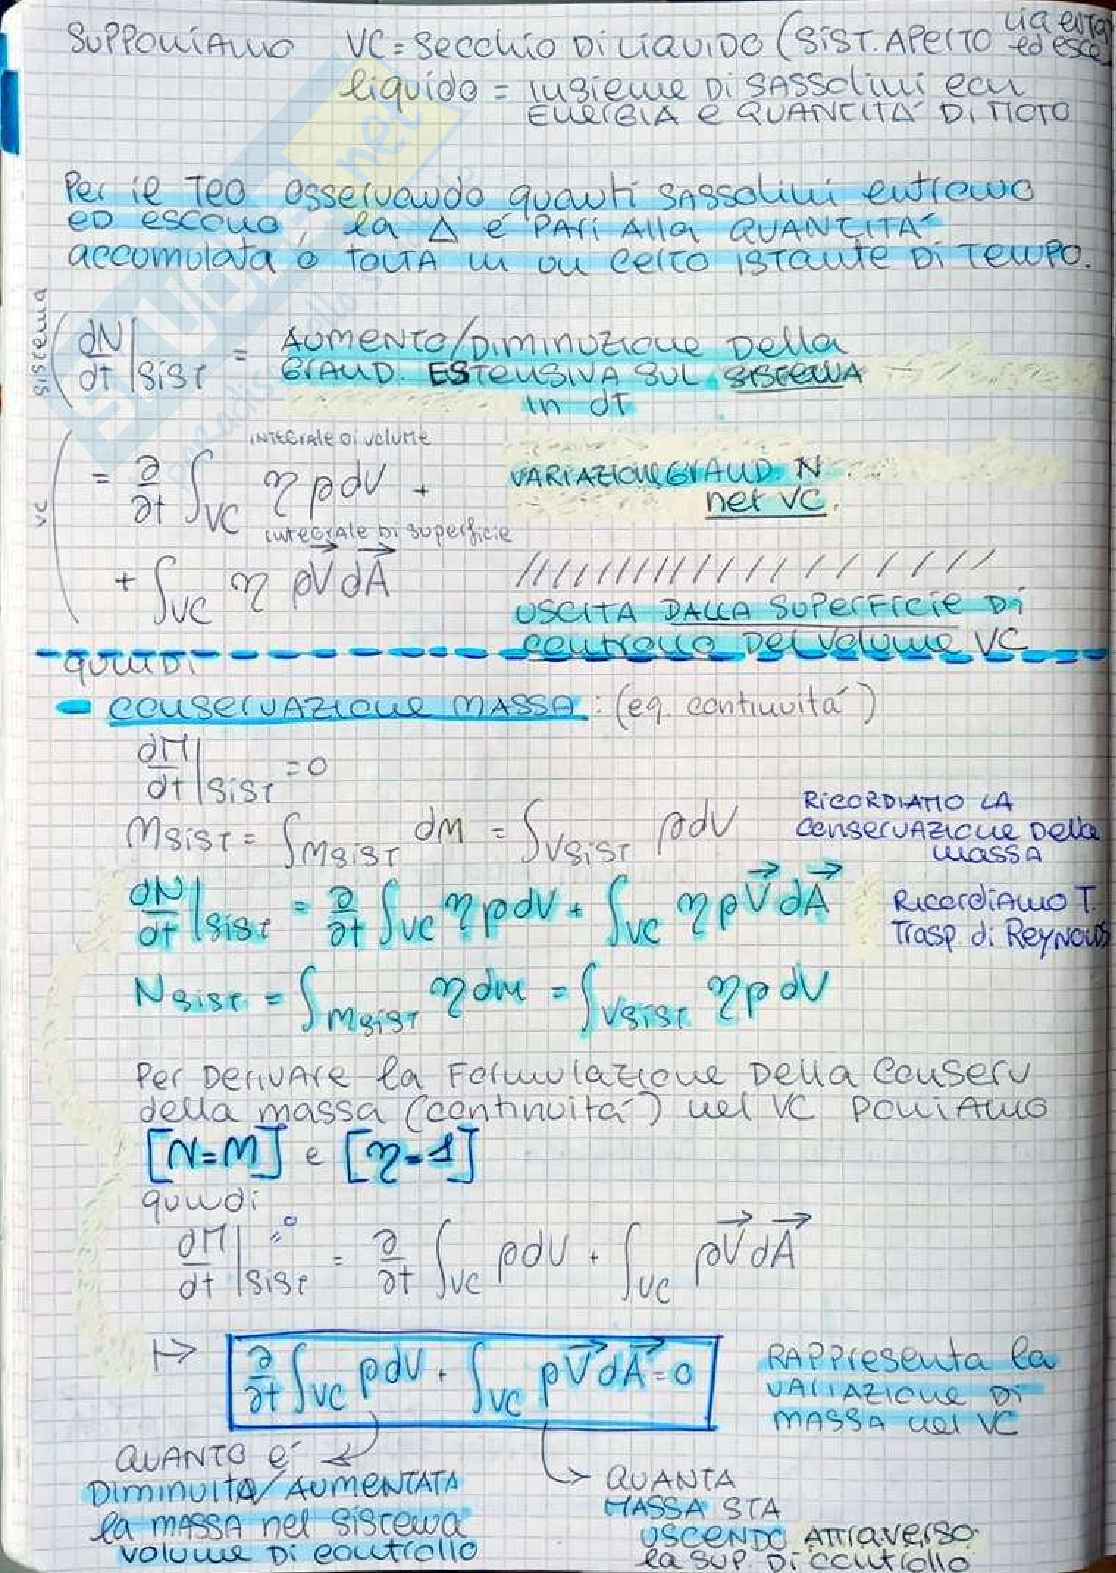 SUPPONIAMO VC = SECCHIO DI LIQUIDO (SIST. APERTO liq entra ed esce)
liquido = INSIEME DI SASSOLINI CON
ENERGIA e QUANTITÀ DI MOTO
Per il TEO osservando quanti SASSOLINI entrano
ED escono, la Δ é PARI AllA QUANTITÀ
accumulata o tolta in un certo istante di tempo.
SISTEMA
dN/dt|SIST = AUMENTO/DIMINUZIONE DELLA
GRAND. ESTENSIVA SUL SISTEMA
in dT
VC
INTEGRALE DI VOLUME
= ∂/∂t ∫VC η ρ dV + VARIAZIONE GRAND. N
nel VC.
INTEGRALE DI superficie
+ ∫VC η ρV⃗ dA⃗
USCITA DALLA SUPERFICIE DI
controllo DEL VOLUME VC
quindi
- CONSERVAZIONE MASSA: (eq. continuitá)
dM/dt|SIST = 0
MSIST = ∫MSIST dM = ∫VSIST ρdV
RICORDIAMO LA
CONSERVAZIONE DELLA
MASSA
dN/dt|SIST = ∂/∂t ∫VC η ρ dV + ∫VC η ρV⃗ dA⃗
Ricordiamo T.
Trasp. di REYNOLDS
NSIST = ∫MSIST η dm = ∫VSIST η ρ dV
Per Derivare la Formulazione Della Conserv
della massa (continuitá) nel VC PONIAMO
[N=M] e [η=1]
quindi
dM/dt|SIST = 0 = ∂/∂t ∫VC ρdV + ∫VC ρV⃗ dA⃗
↦ ∂/∂t ∫VC ρdV + ∫VC ρV⃗ dA⃗ = 0
RAPPresenta la
VARIAZIONE DI
MASSA nel VC
QUANTO é
DIMINUITA/AUMENTATA
la MASSA nel sistema
volume DI controllo
QUANTA
MASSA STA
USCENDO ATTRAVERSO
la SUP. DI controllo